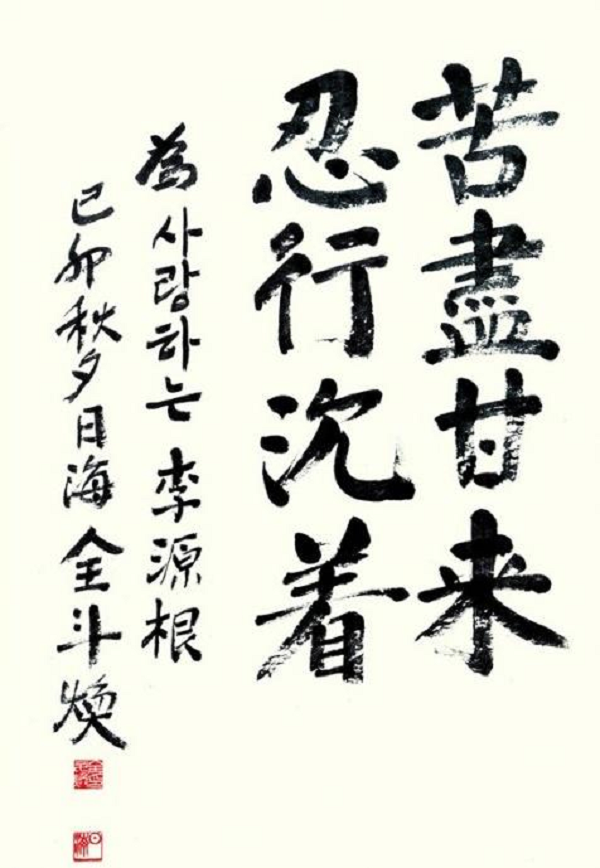 苦盡甘来
忍行沉着
為 사랑하는 李源根
己卯秋夕 日海 全斗煥